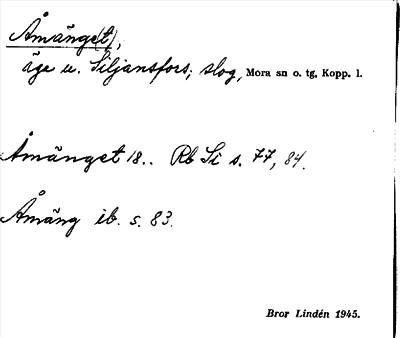 Åmänget),
äga u. Siljansfors; slog, Mora sn o. tg, Kopp. l.
Åmänget 18.. Rb Si s. 77, 84.
Åmäng ib. s. 83.
Bror Lindén 1945.